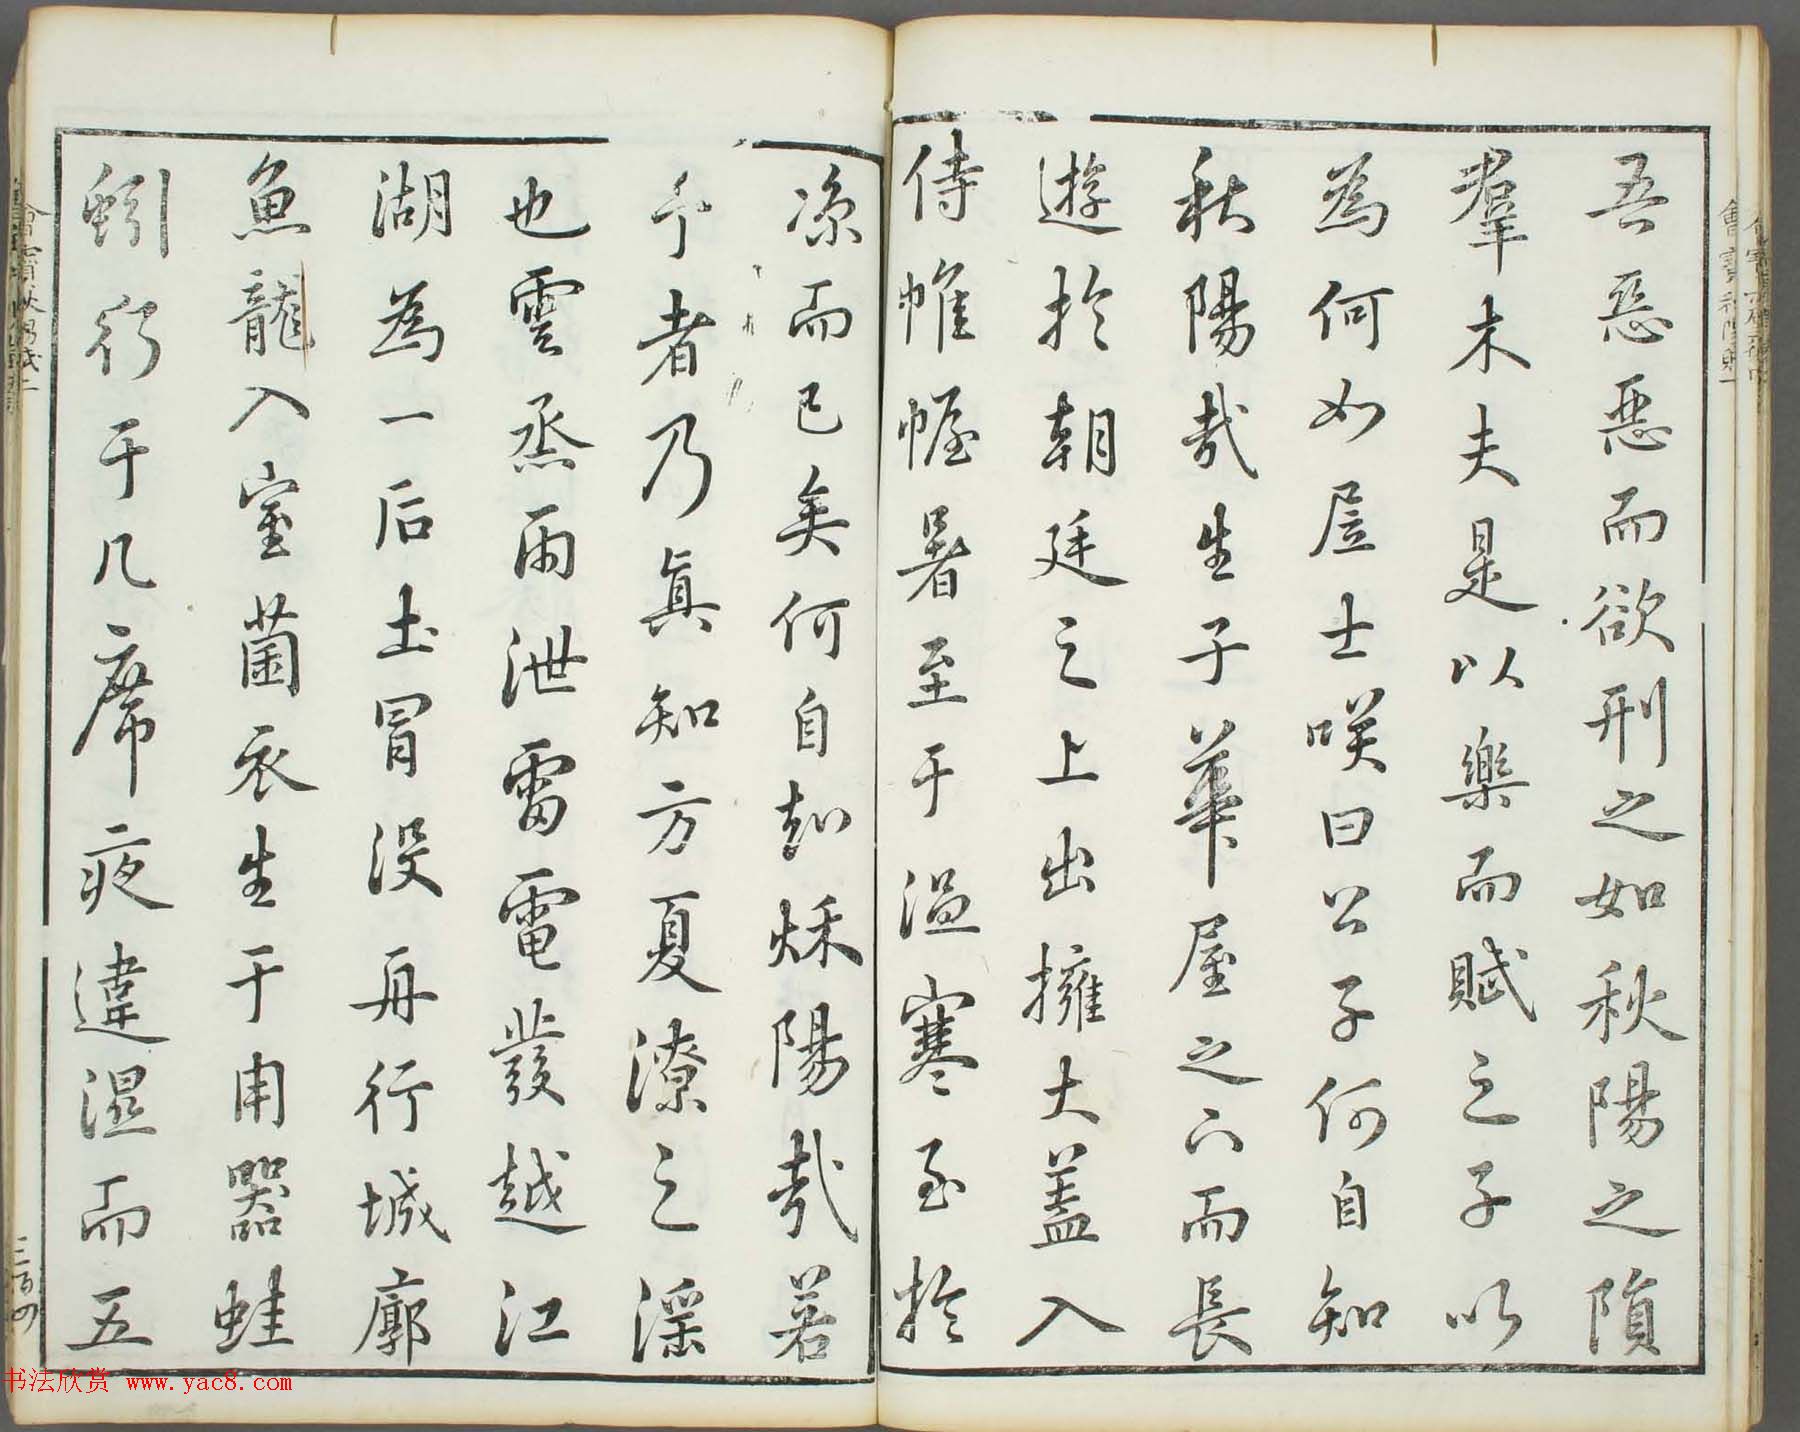 吾惡惡而欲刑之如秋陽之隕
羣木夫是以樂而賦之子以
為何如居士咲曰公子何自知
秋陽哉生子華屋之下而長
遊於朝廷之上出擁大蓋入
侍帷幄暑至于溫寒至於
涼而已矣何自知秌陽哉若
予者乃真知方夏潦之淫
也雲烝雨泄雷電發越江
湖為一后土冒没舟行城廓
魚龍入室菌衣生于用器蛙
蚓行于几席夜違濕而五
三百四
书法欣赏 www.yac8.com